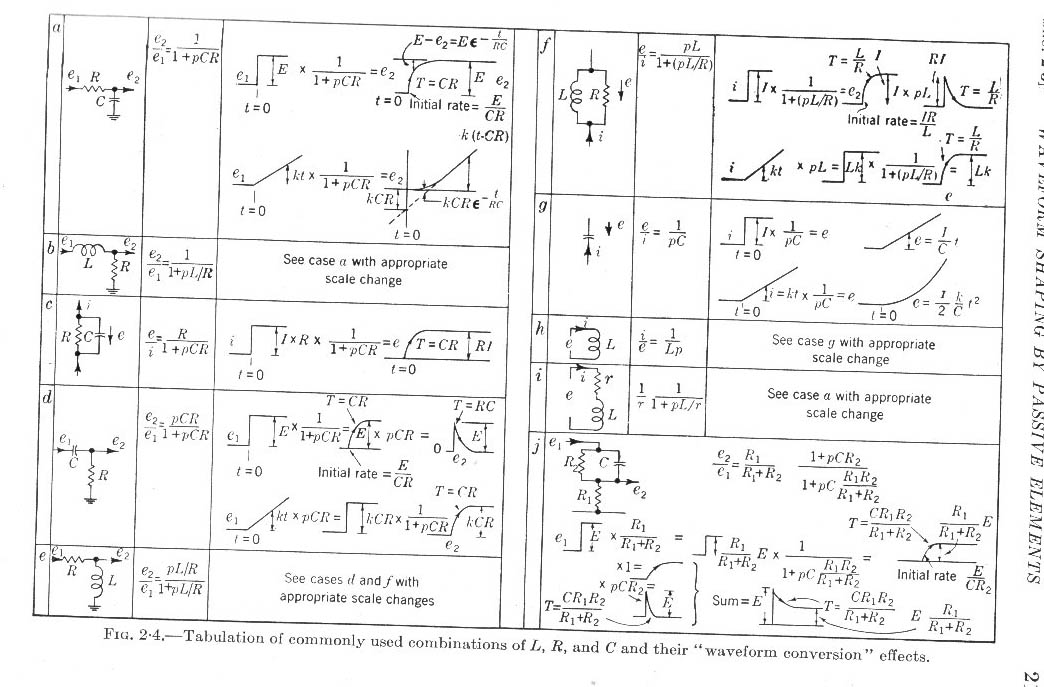 a
e1 R e2
C
e2/e1 = 1/(1+pCR)
e1 E × 1/(1+pCR) = e2
t=0
E−e2=Eϵ^−t/RC
T=CR E e2
t=0 Initial rate = E/CR
e1 kt × 1/(1+pCR) = e2
t=0
k(t-CR)
kCR
kCRϵ^−t/RC
t=0
b e1 e2
L R
e2/e1 = 1/(1+pL/R)
See case a with appropriate
scale change
c i
R C e
e/i = R/(1+pCR)
i I×R × 1/(1+pCR) = e T=CR RI
t=0 t=0
d
e1 e2
C
R
e2/e1 = pCR/(1+pCR)
T=CR T=RC
e1 E× 1/(1+pCR) = E × pCR = 0 E
e2
t=0 Initial rate = E/CR
T=CR
e1 kt × pCR = kCR× 1/(1+pCR) kCR
t=0 e2
e e1 e2
R L
e2/e1 = (pL/R)/(1+pL/R)
See cases d and f with
appropriate scale changes
f
L R e
i
e/i = pL/(1+(pL/R))
T=L/R I RI
i I× 1/(1+(pL/R)) =e2 I × pL T=L/R
Initial rate = IR/L
T=L/R
i kt × pL = Lk × 1/(1+(pL/R)) = Lk
e
g
e
i
e/i = 1/pC
i I× 1/pC = e e = I/C t
t=0
i=kt× 1/pC = e e = 1/2 k/C t²
t=0 t=0
h i
e L
i/e = 1/Lp
See case g with appropriate
scale change
i i r
e
L
1/r 1/(1+pL/r)
See case a with appropriate
scale change
j e1
R2 C
R1 e2
e2/e1 = R1/(R1+R2) (1+pCR2)/(1+pC R1R2/(R1+R2))
T= CR1R2/(R1+R2) R1/(R1+R2) E
e1 E × R1/(R1+R2) = R1/(R1+R2) E × 1/(1+pC R1R2/(R1+R2)) =
Initial rate E/CR2
×1=
× pCR2= E
T= CR1R2/(R1+R2)
Sum=E T= CR1R2/(R1+R2) E R1/(R1+R2)
FIG. 2·4.—Tabulation of commonly used combinations of L, R, and C and their "waveform conversion" effects.
WAVEFORM SHAPING BY PASSIVE ELEMENTS